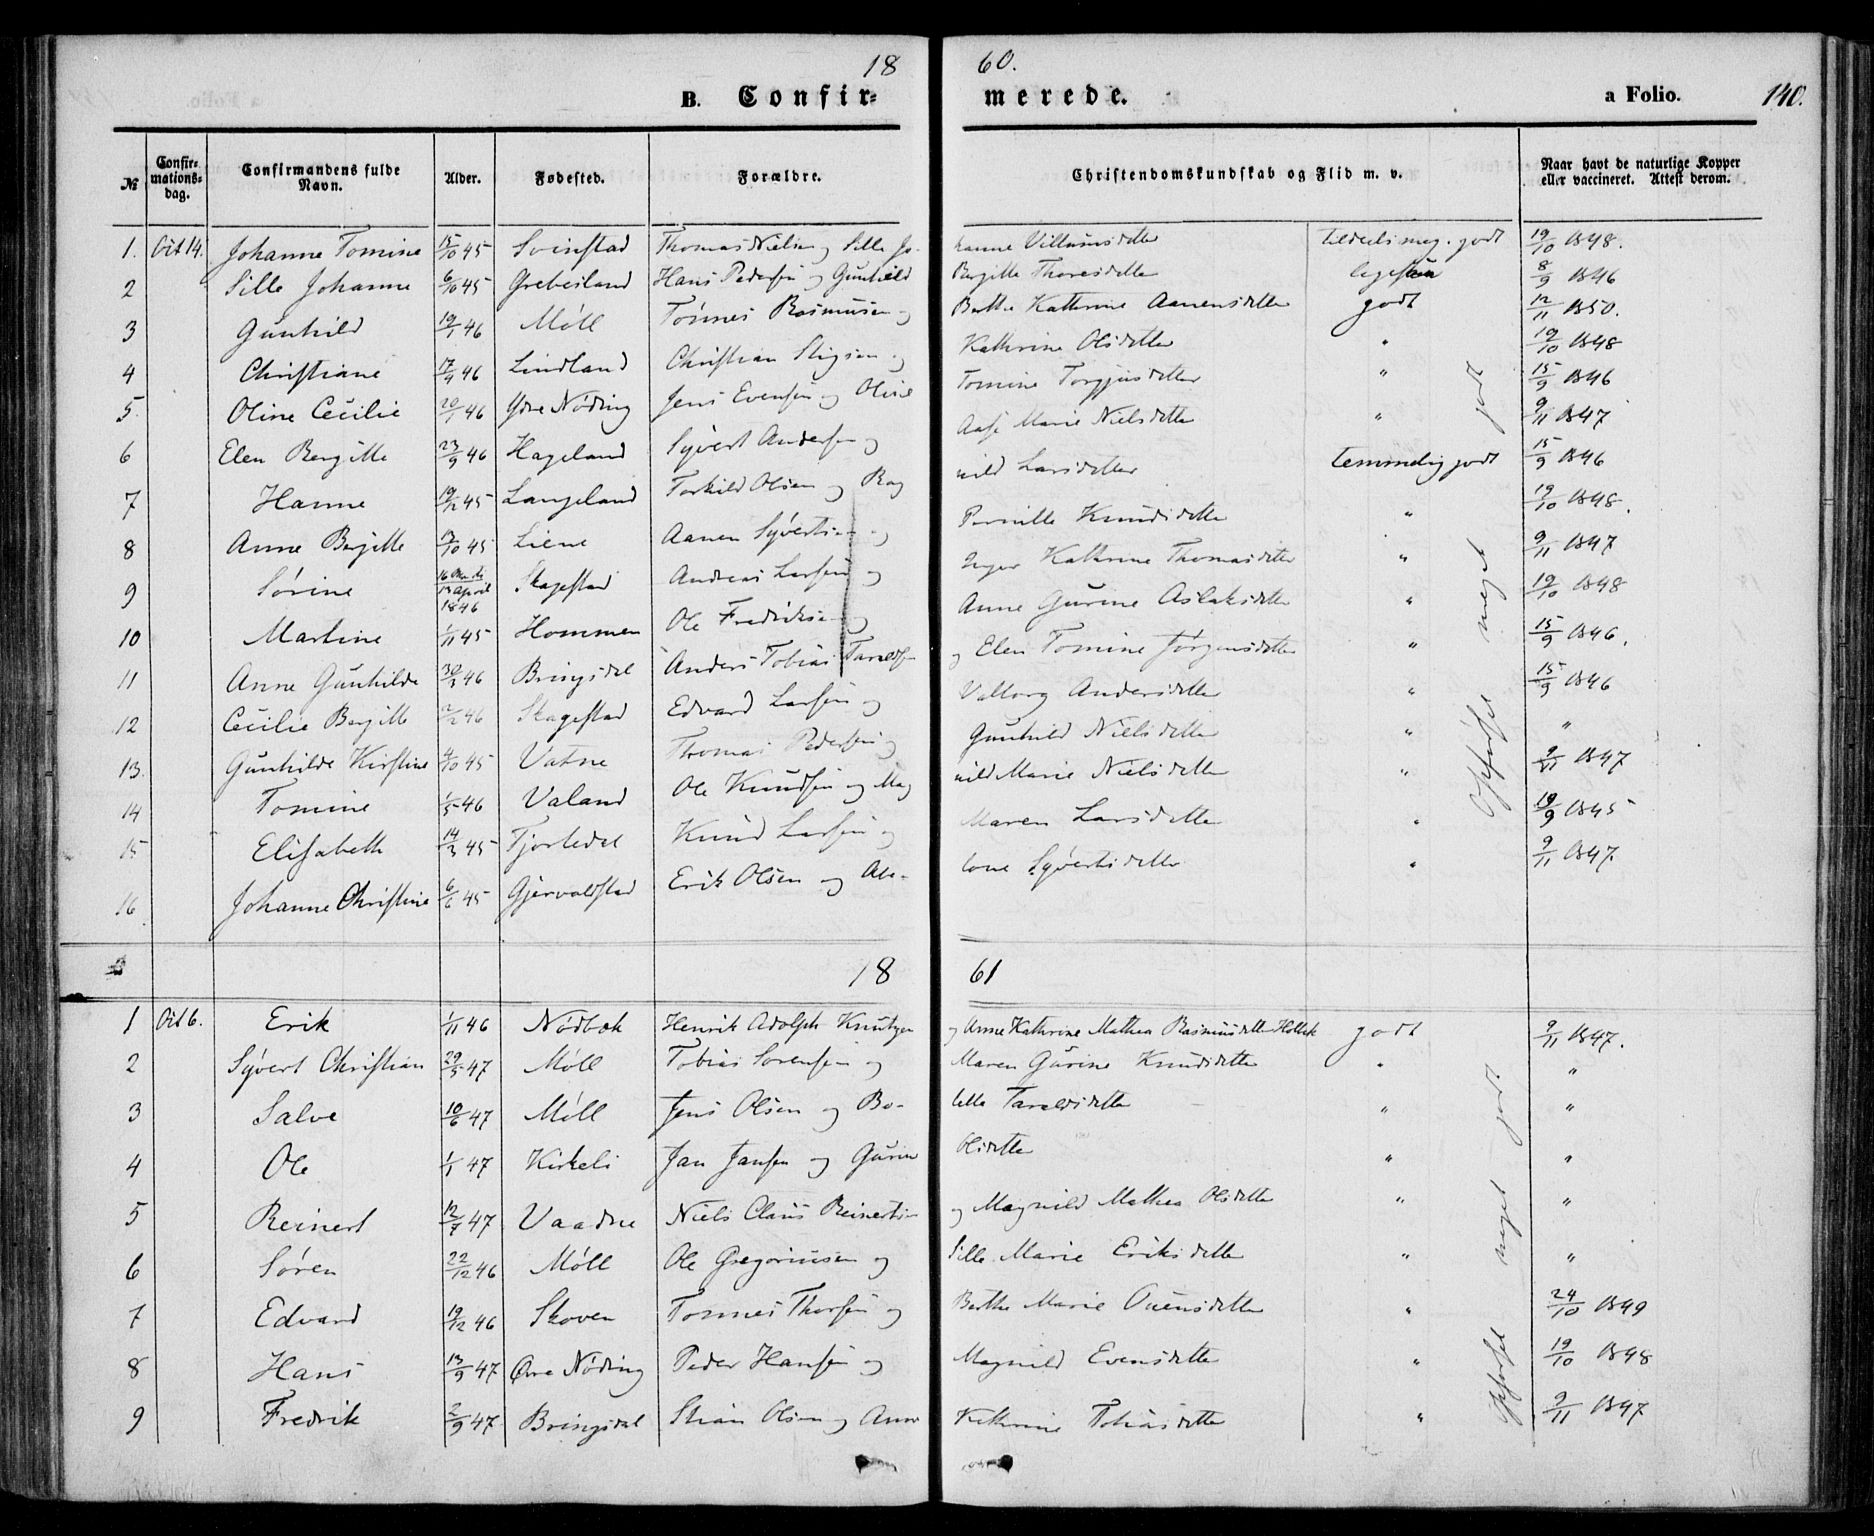 18 60.
B. Confir- merede. a Folio. 140.
№ Confirmationsdag. Confirmandens fulde Navn. Alder. Fødested. Forældre. Christendomskundskab og Flid m. v. Naar havt de naturlige Kopper eller vaccineret. Attest derom.
1. Oct 14. Johanne Tomine 15/10 45 Svinstad Thomas Nielsen og Sille Johanne Villumsdatter tildeels meg. godt 19/10 1848.
2 Sille Johanne 6/10 45 Grebesland Hans Pedersen og Gunhild Bergitte Thoresdatter 8/9 1846
3 Gunhild 19/1 46 Möll Tönnes Rasmusen og Berthe Kathrine Aanensdatter godt 12/11 1850.
4 Christiane 17/4 46 Lindland Christian Stigsen og Kathrine Olsdatter " 19/10 1848
5. Oline Cecilie 20/1 46 Ydre Nøding Jens Evensen og Oline Tomine Torgjusdatter " 15/9 1846
6 Elen Bergitte 23/9 46 Hageland Syvert Andersen og Aase Marie Nielsdatter " 9/11 1847
7 Hanne 19/12 45 Langeland Torkild Olsen og Ragnild Larsdatter temmelig godt 15/9 1846
8 Anne Bergitte 13/10 45 Liene Aanen Syvertsen og Pernille Knudsdatter " 19/10 1848.
9 Sörine 1846 Skagestad Andreas Larsen og Inger Kathrine Thomasdatter " 9/11 1847
10 Martine 1/11 45 Hommen Ole Fredriksen og Anne Gurine Aslaksdatter " 19/10 1848
11 Anne Gunhilde 30/3 46 Bringsdal Anders Tobias Taraldsen og Elen Tomine Jörgensdatter " 15/9 1846.
12 Cecilie Bergitte 46 Skagestad Edvard Larsen og Valborg Andersdatter " 15/9 1846
13. Gunhilde Kirstine 4/10 45 Vatne Thomas Pedersen og Gunhild Nielsdatter " "
14 Tomine 1/5 46 Valand Ole Knudsen og Magnild Marie Nielsdatter " 9/11 1847
15 Elisabeth 14/3 45 Tjortedal Knud Larsen og Maren Larsdatter " 19/9 1845
16 Johanne Christine 6/6 45 Gjervoldstad Erik Olsen og Alelone Syvertsdatter " 9/11 1847.
Opförsel meget godt
18 61
1 Oct 6. Erik 1/11 46 Nödbok Henrik Adolph Knutzen og Anne Kathrine Mathea Rasmusdatter Holbek godt 9/11 1847.
2 Syvert Christian 29/5 47 Möll Tobias Sorensen og Maren Gurine Knudsdatter " "
3 Salve 10/6 47 Möll Jens Olsen og Bolette Taraldsdatter " "
4 Ole 1/1 47 Kirkeli Jan Jansen og Gurine Olsdatter " "
5 Reinert 12/7 47 Vaadne Niels Claus Reinertsen og Magnild Mathea Olsdatter " "
6 Sören 22/12 46 Möll Ole Gregoriusen og Sille Marie Eriksdatter " "
7 Edvard 19/12 46 Skoven Tonnes Thorsen og Berthe Marie Ouensdatter " 24/10 1849
8 Hans 13/9 47 Øvre Nöding Peder Hansen og Magnild Evensdatter " 19/10 1848
9 Fredrik 2/9 47 Bringsdal Stian Olsen og Anne Kathrine Tobiasdatter " 9/11 1847
Opförsel meget godt